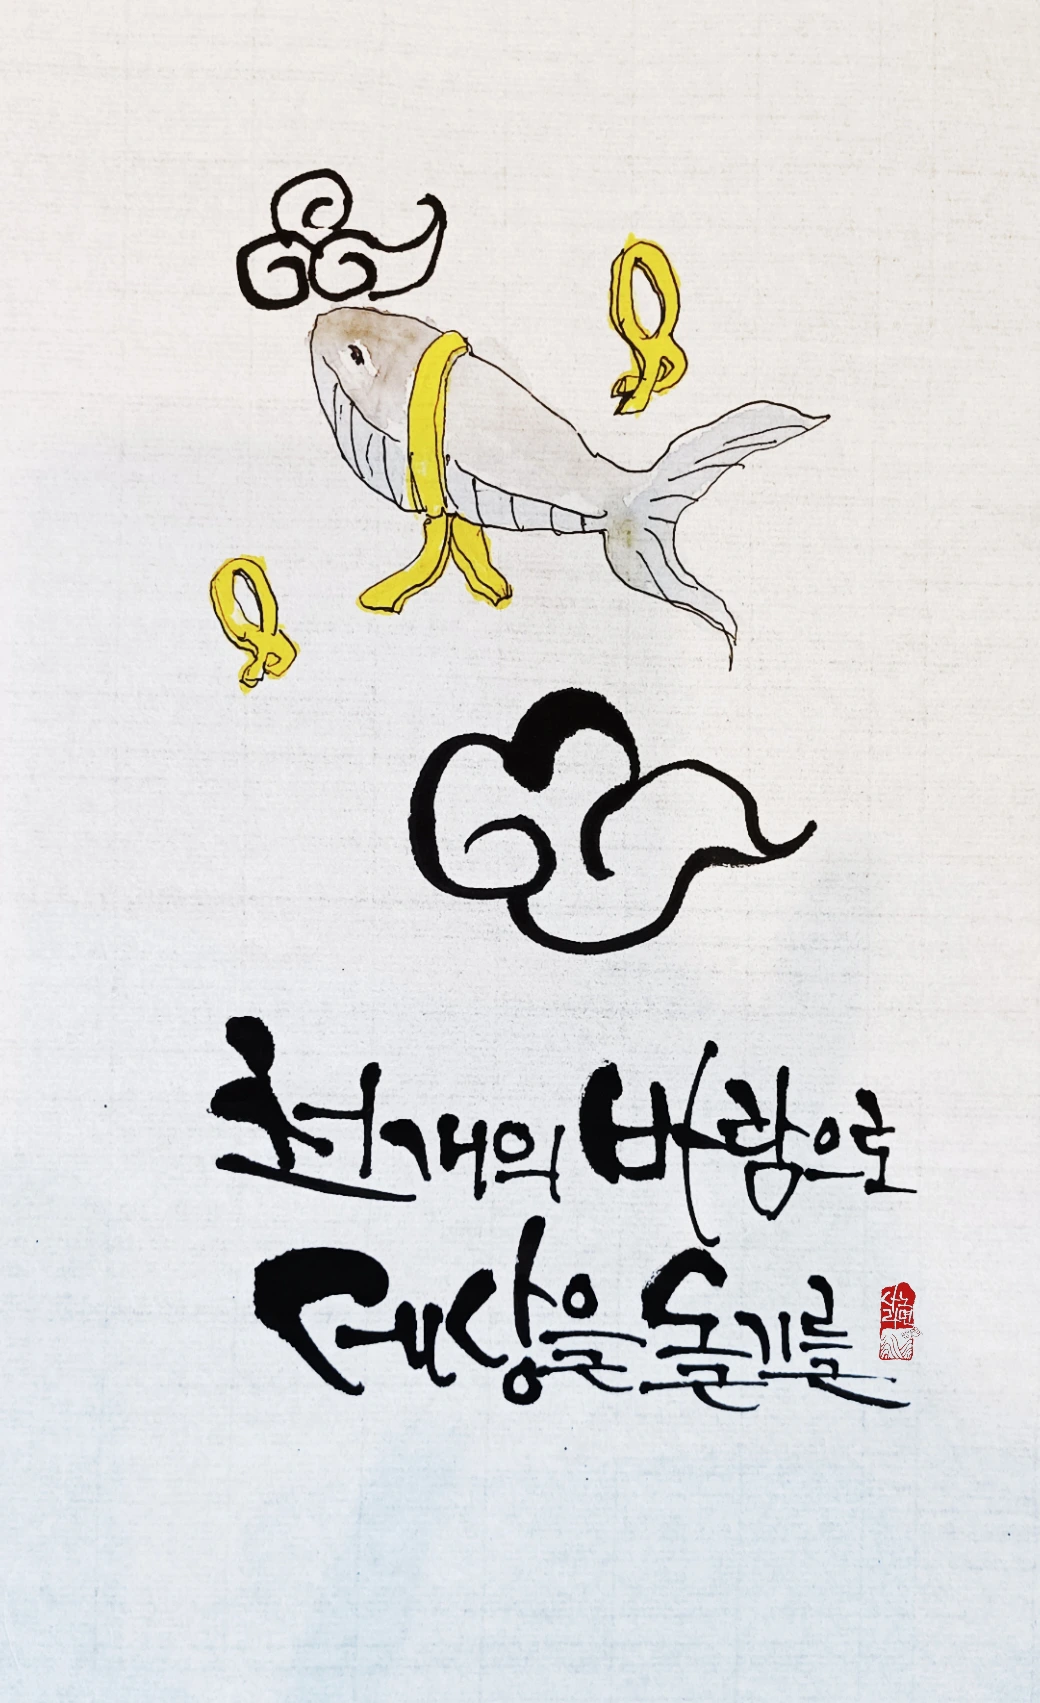 천개의 바람으로
세상을 돌기를